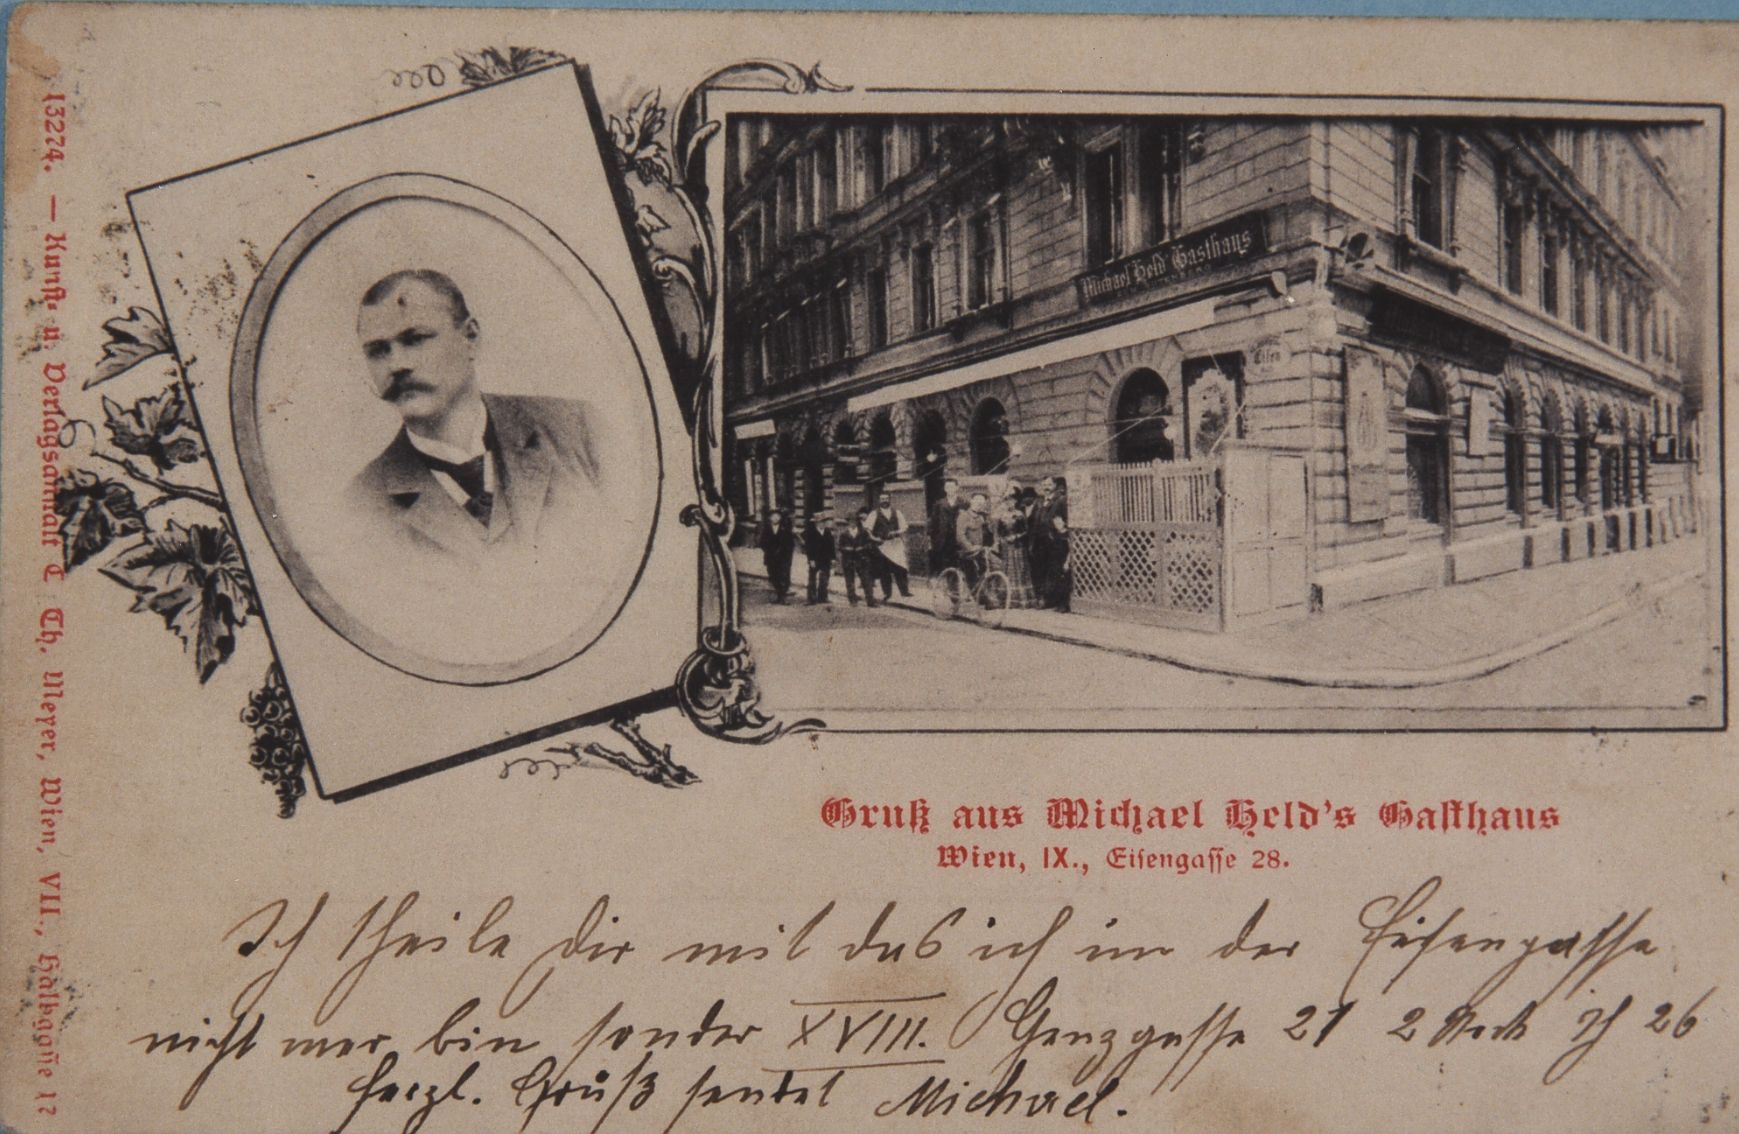 13274. — Kunst- u. Verlagsanstalt C. Th. Meyer, Wien, VII., Halbgasse 1?
Michael Held Gasthaus
Eisen
Gruß aus Michael Held's Gasthaus
Wien, IX., Eisengasse 28.
Ich theile dir mit das ich in der Eisengasse
nicht mer bin sonder XVIII. Genzgasse 21 2 Stock 26
herzl. Gruß sendet Michael.